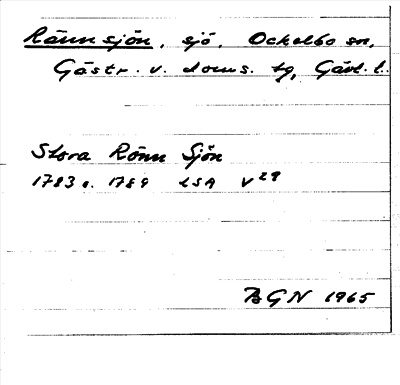 Rännsjön, sjö, Ockelbo sn,
Gästr. v. doms. tg, Gävl. l.
Stora Rönn Sjön
1783 o. 1789 LSA V 29
BGN 1965